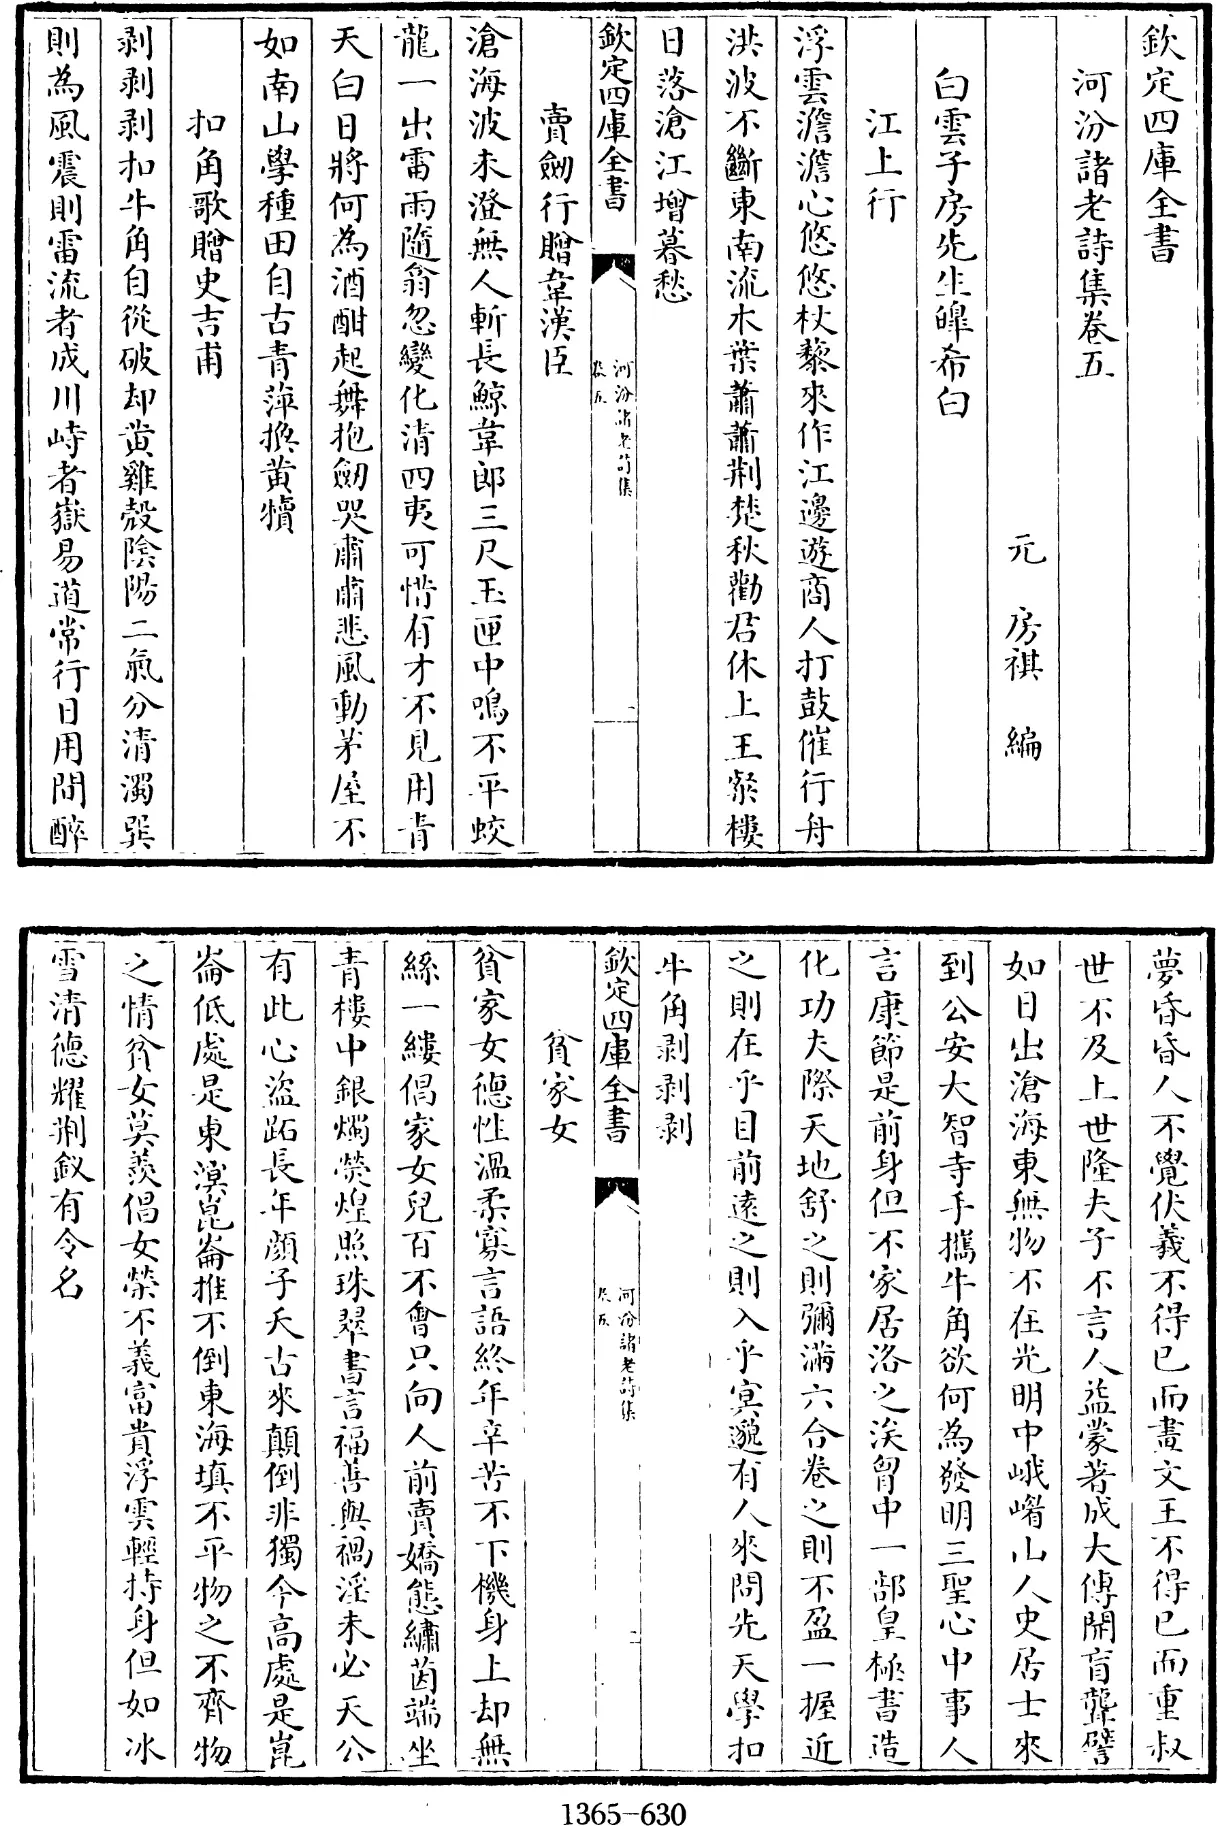 欽定四庫全書
河汾諸老詩集卷五
元 房祺 編
白雲子房先生皡希白
江上行
浮雲澹澹心悠悠杖藜來作江邊遊商人打鼓催行舟
洪波不斷東南流木葉蕭蕭荆楚秋勸君休上王粲樓
日落滄江增暮愁
欽定四庫全書
河汾諸老詩集
卷五
一
賣劒行贈韋漢臣
滄海波未澄無人斬長鯨韋郎三尺玉匣中鳴不平蛟
龍一出雷雨隨翁忽變化清四夷可惜有才不見用青
天白日將何為酒酣起舞抱劒哭肅肅悲風動茅屋不
如南山學種田自古青萍換黄犢
扣角歌贈史吉甫
剥剥剥扣牛角自從破却黄雞殻陰陽二氣分清濁巽
則為風震則雷流者成川峙者嶽易道常行日用間醉
夢昏昏人不覺伏義不得已而畫文王不得已而重叔
世不及上世隆夫子不言人益蒙著成大傳開盲聾譬
如日出滄海東無物不在光明中峨嵋山人史居士來
到公安大智寺手攜牛角欲何為發明三聖心中事人
言康節是前身但不家居洛之涘胷中一部皇極書造
化功夫際天地舒之則彌滿六合卷之則不盈一握近
之則在乎目前遠之則入乎㝠邈有人來問先天學扣
牛角剥剥
欽定四庫全書
河汾諸老詩集
卷五
二
貧家女
貧家女德性溫柔寡言語終年辛苦不下機身上却無
絲一縷倡家女兒百不會只向人前賣嬌態繡茵端坐
青樓中銀燭熒煌照珠翠書言福善與禍淫未必天公
有此心盗跖長年顔子夭古來顛倒非獨今高處是崑
崙低處是東溟崑崙推不倒東海填不平物之不齊物
之情貧女莫羨倡女榮不義富貴浮雲輕持身但如冰
雪清德耀荆釵有令名
1365-630